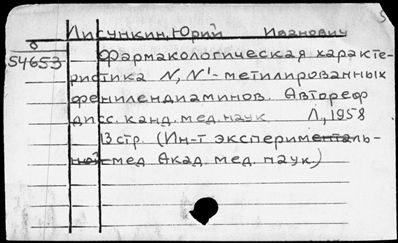 5
Лисункин, Юрий Иванович
б
54653 Фармакологическая характе-
ристика N, N'- метилированных
фенилендиаминов. Автореф
дисс. канд. мед. наук Л, 1958
13 стр. (Ин-т эксперименталь-
ной мед Акад. мед. наук.)